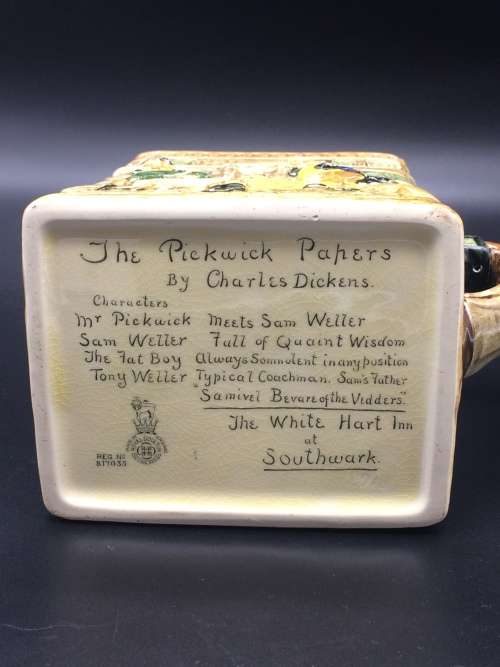 The Pickwick Papers
By Charles Dickens.
Characters
Mr Pickwick Meets Sam Weller
Sam Weller Full of Quaint Wisdom
The Fat Boy Always Somnolent in any position
Tony Weller Typical Coachman. Sam's Father
"Samivel Beware of the Vidders."
The White Hart Inn
at
Southwark.
REG. No